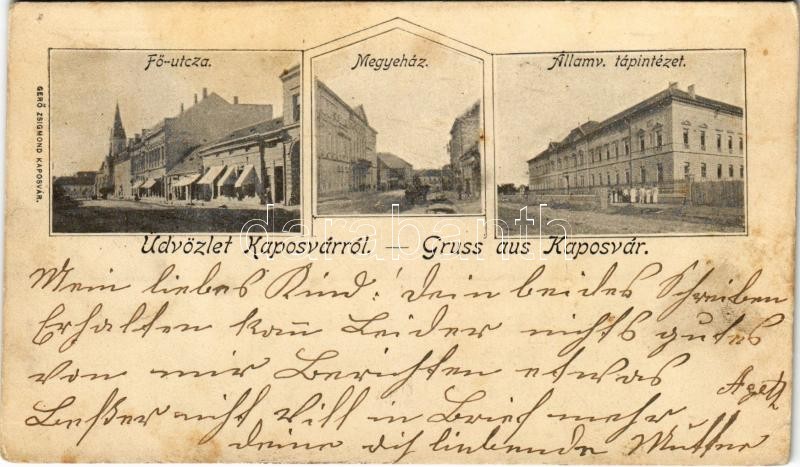 Fő-utcza.
Megyeház.
Államv. tápintézet.
GERŐ ZSIGMOND KAPOSVÁR.
darabanth
Üdvözlet Kaposvárról. — Gruss aus Kaposvár.
Mein liebes Kind! dein beides Schreiben
Erhalten kan̄ Leider nichts gutes
von mir Berichten etwas
Beßer nicht Vill in Brief mehr
deine dich liebende Mutter